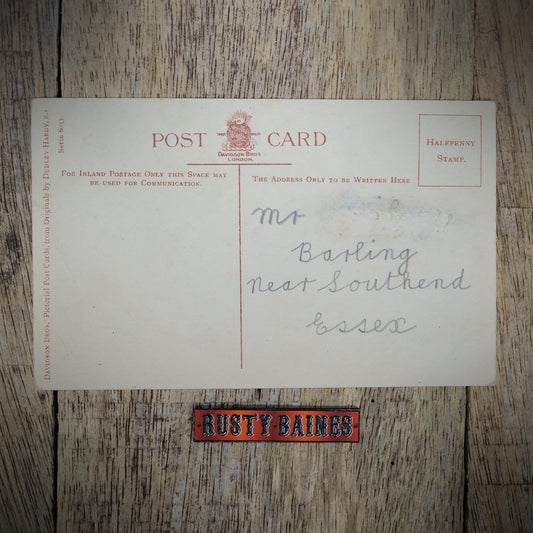 POST CARD
DAVIDSON BROS
LONDON.
FOR INLAND POSTAGE ONLY THIS SPACE MAY
BE USED FOR COMMUNICATION.
THE ADDRESS ONLY TO BE WRITTEN HERE
HALFPENNY
STAMP.
Mr
Barling
near Southend
Essex
DAVIDSON BROS. Pictorial Post Cards, from Originals by DUDLEY HARDY, R.I.
Serie 6033.
RUSTY BAINES